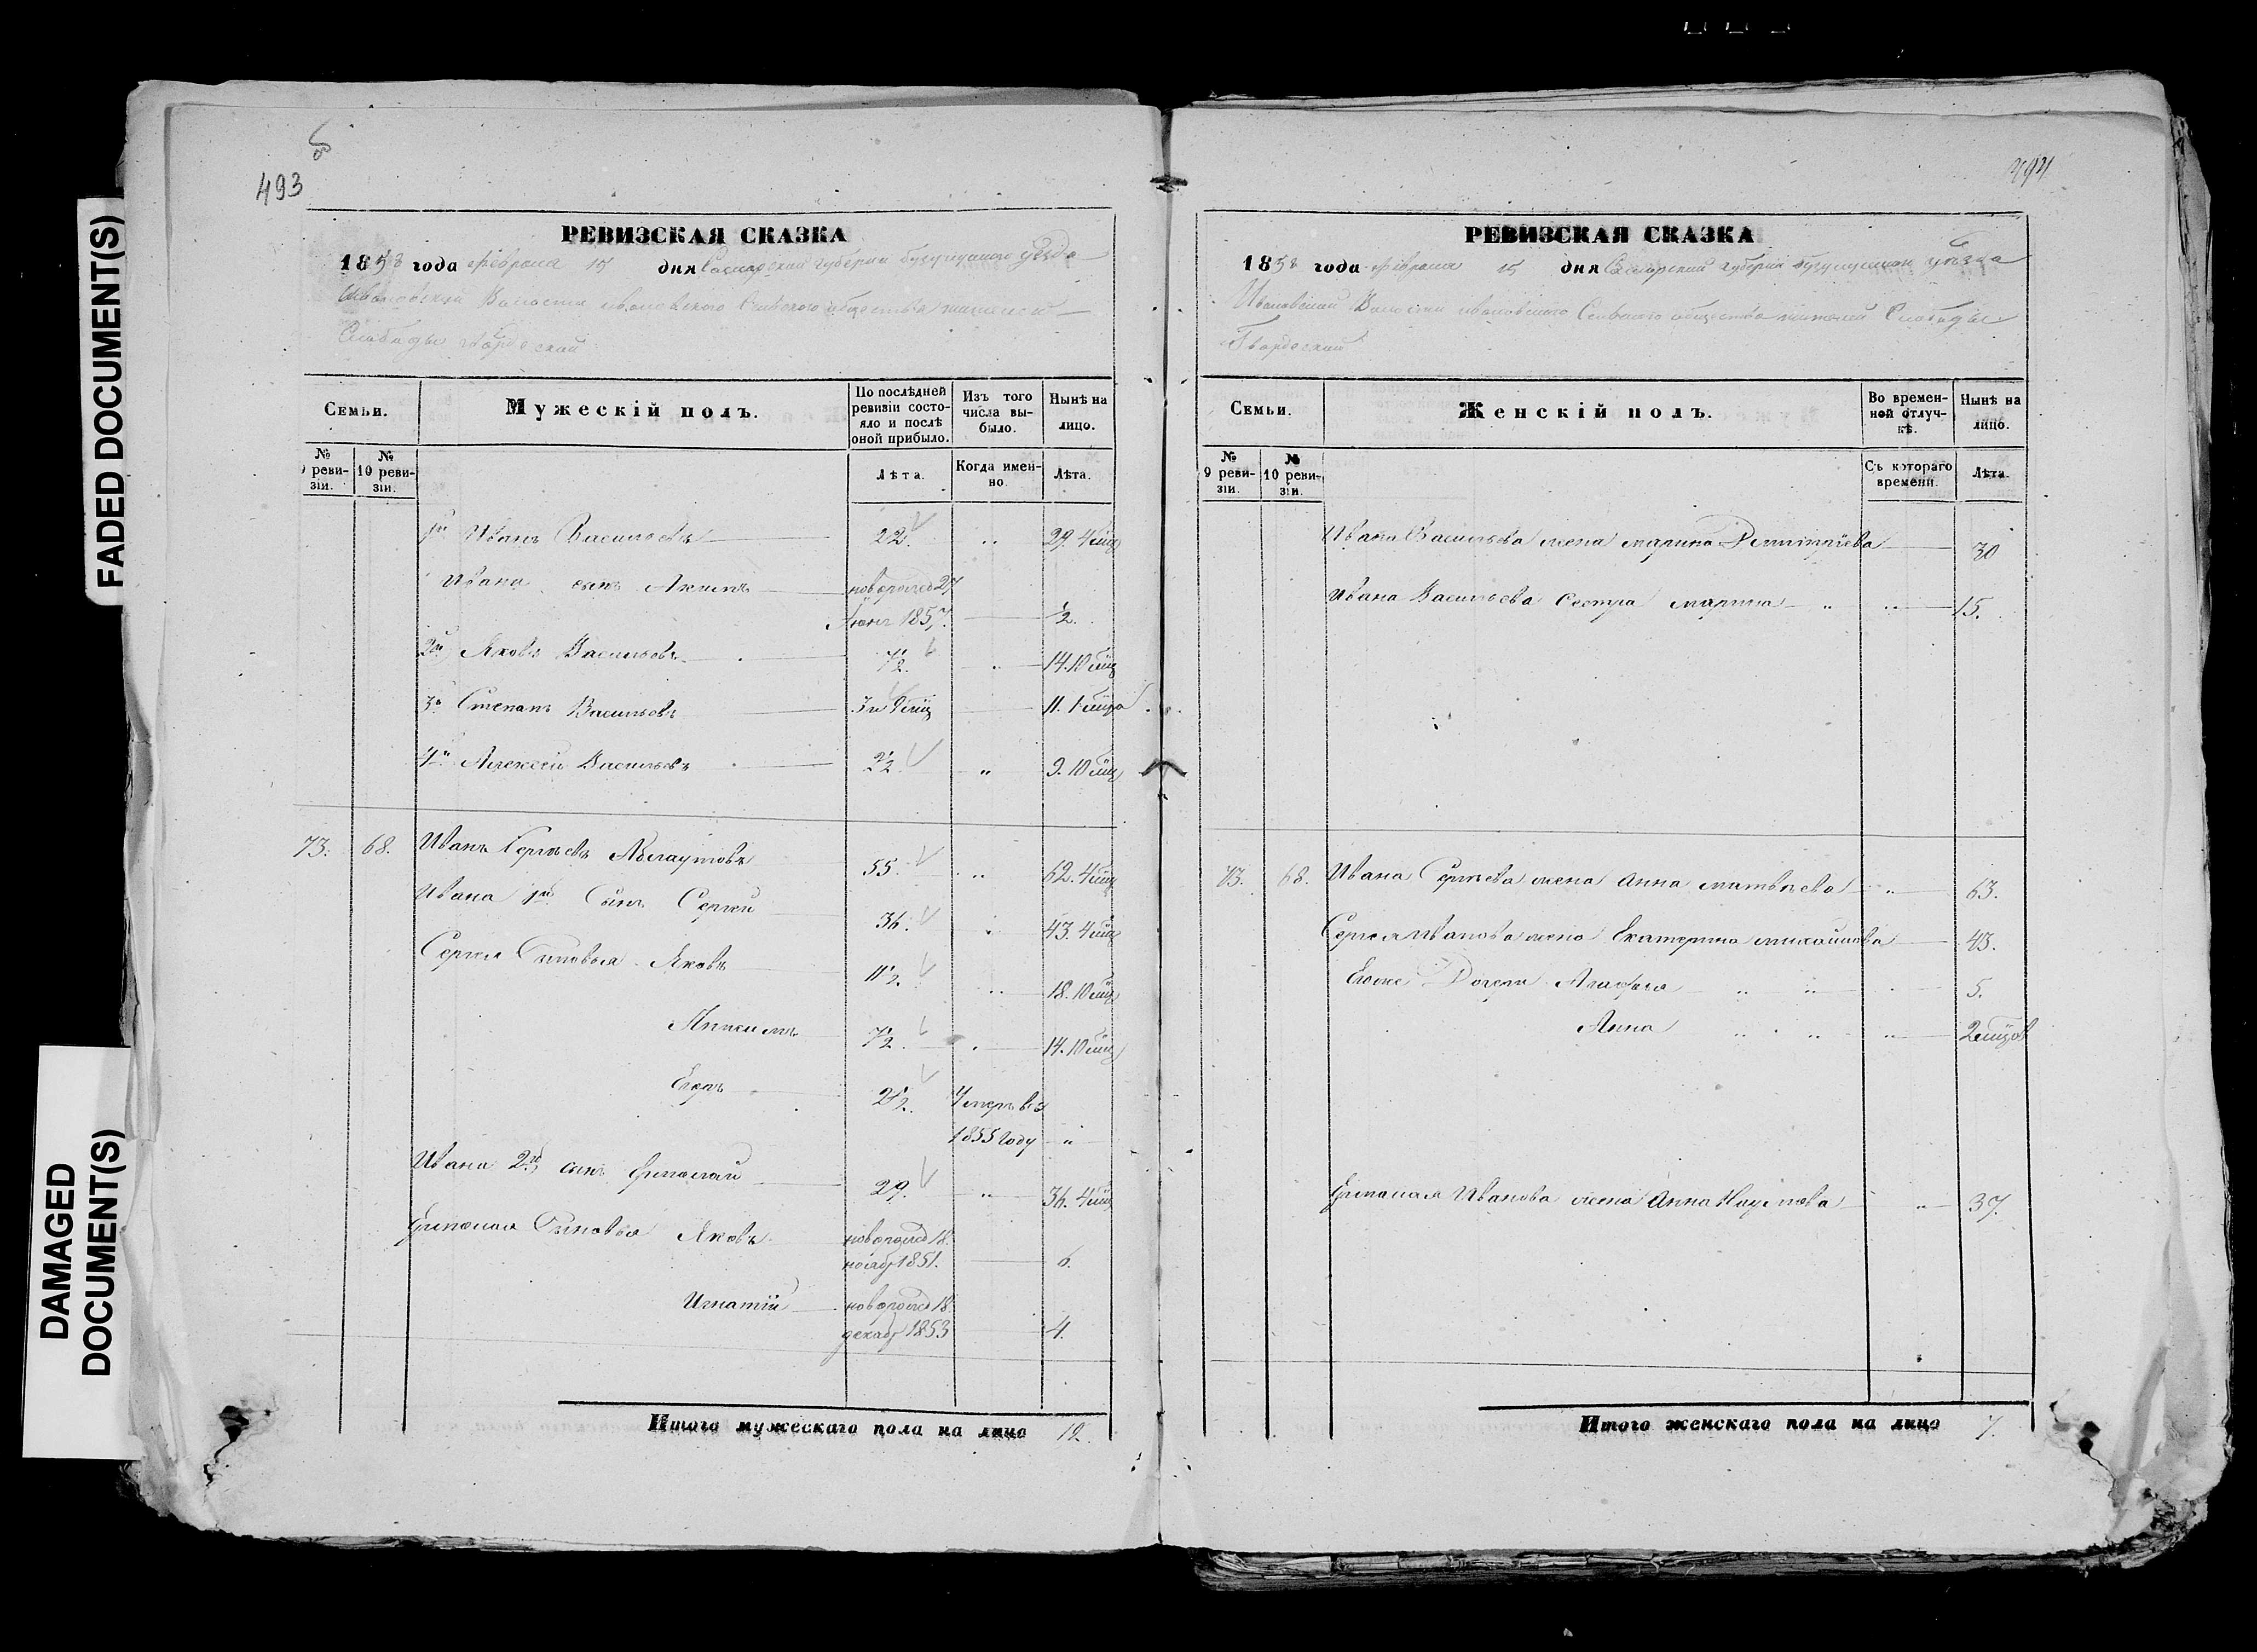 FADED DOCUMENT(S)
DAMAGED
DOCUMENT(S)
493
РЕВИЗСКАЯ СКАЗКА
1858 года февраля 15 дня Самарской губернии бузулукского уезда
Ивановской Волости ивановского Сельского общества жителей
Слободы
Семьи.
Мужескій полъ.
По послѣдней ревизіи состояло и послѣ оной прибыло.
Изъ того числа выбыло.
Нынѣ на лицо.
№ 9 ревизіи.
№ 10 ревизіи.
Лѣта.
Когда именно.
Лѣта.
1й Иванъ Васильевъ 22. 29. 4 мѣц
Ивана сынъ новорожд 27
1857. 1/2.
2й Яковъ Васильевъ 7 1/2. 14. 10 мѣц
3й Степанъ Васильевъ 11. 1 мѣца
4й Алексѣй Васильевъ 2 1/2. 9. 10 мѣц
73. 68. Иванъ Сергѣевъ 55. 62. 4 мѣц
Ивана 1й Сынъ Сергѣй 36. 43. 4 мѣц
Сергѣя Сыновья Яковъ 11 1/2. 18. 10 мѣц
7 1/2. 14. 10 мѣц
Егоръ 2 1/2. Умеръ въ
1855 году
Ивана 2й сынъ Ермолай 29. 36. 4 мѣц
Ермолая Сыновья Яковъ новорожд 18.
ноябр 1851. 6.
Игнатій новорожд 18.
декабр 1853 4.
Итого мужескаго пола на лицо 12.
494
РЕВИЗСКАЯ СКАЗКА
1858 года февраля 15 дня Самарской губернии бузулукского уезда
Ивановской Волости ивановского Сельского общества жителей Слободы
Семьи.
Женскій полъ.
Во временной отлучкѣ.
Нынѣ на лицо.
№ 9 ревизіи.
№ 10 ревизіи.
Съ котораго времени.
Лѣта.
Ивана Васильева жена марина Дмитрiева 30
Ивана Васильева Сестра марина 15.
73. 68. Ивана Сергѣева жена Анна матвѣева 63.
Сергѣя Иванова жена Екатерина михайлова 43.
Егоже Дочери Агафья 5.
Анна 2 мѣцов
Ермолая Иванова жена Анна Наумова 37.
Итого женскаго пола на лицо 7.